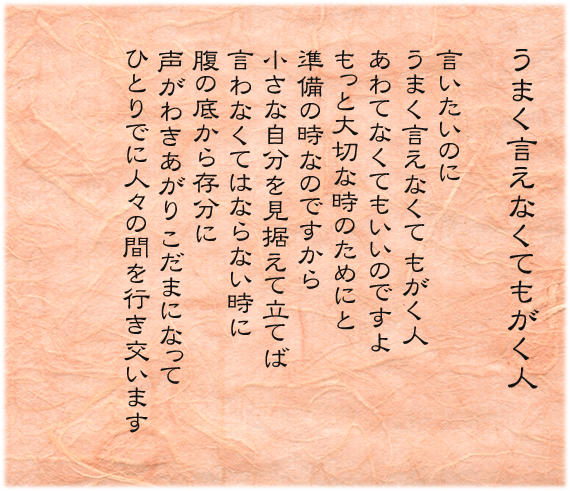 うまく言えなくてもがく人
言いたいのに
うまく言えなくて もがく人
あわてなくてもいいのですよ
もっと大切な時のためにと
準備の時なのですから
小さな自分を見据えて立てば
言わなくてはならない時に
腹の底から存分に
声がわきあがり こだまになって
ひとりでに人々の間を行き交います